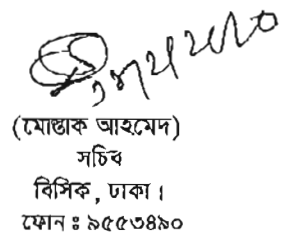 (মোস্তাক আহমেদ)
সচিব
বিসিক, ঢাকা।
ফোন ঃ ৯৫৫৩৪৯০